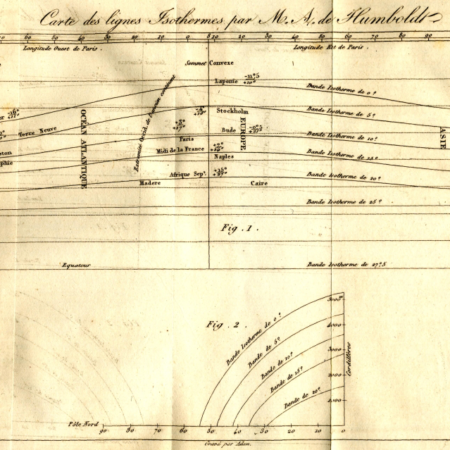 Carte des lignes Isothermes, par M. A. de Humboldt
Longitude Ouest de Paris.
Longitude Est de Paris.
Sommet Convexe
Laponie
Bande Isotherme de 0°
Stockholm
Bande Isotherme de 5°
Terre Neuve
OCÉAN ATLANTIQUE
EUROPE
ASIE
Paris
Bande Isotherme de 10°
Midi de la France
Naples
Bande Isotherme de 15°
Afrique Sepᵗ.
Bande Isotherme de 20°
Madère
Caire
Bande Isotherme de 25°
Fig. 1.
Equateur
Bande Isotherme de 27°5
Fig. 2
Bande Isotherme de 0°
Bande de 5°
Bande de 10°
Bande de 15°
Bande de 20°
Cordillères
Pôle Nord
90 80 70 60 50 40 30 20 10 0
Gravé par Adam